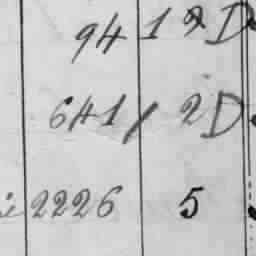 94 1 2 D
641 / 2 D
2226 5